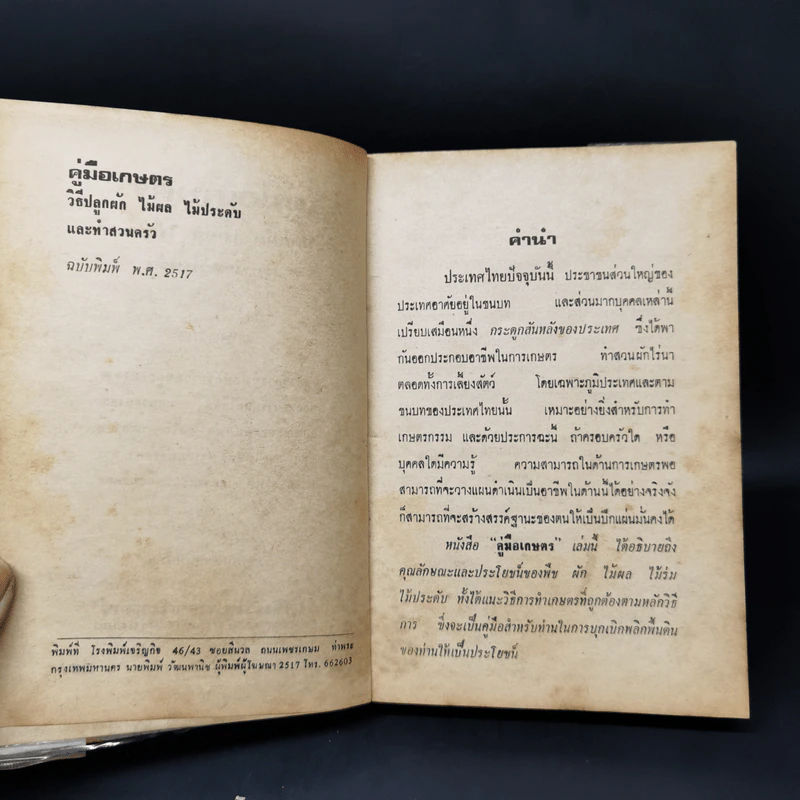 คู่มือเกษตร
วิธีปลูกผัก ไม้ผล ไม้ประดับ
และทำสวนครัว
ฉบับพิมพ์ พ.ศ. 2517
พิมพ์ที่ โรงพิมพ์เจริญกิจ 46/43 ซอยสีนวล ถนนเพชรเกษม ท่าพระ
กรุงเทพมหานคร นายพิมพ์ วัฒนพานิช ผู้พิมพ์ผู้โฆษณา 2517 โทร. 662603
คำนำ
ประเทศไทยปัจจุบันนี้ ประชาชนส่วนใหญ่ของ
ประเทศอาศัยอยู่ในชนบท และส่วนมากบุคคลเหล่านี้
เปรียบเสมือนหนึ่ง กระดูกสันหลังของประเทศ ซึ่งได้พา
กันออกประกอบอาชีพในการเกษตร ทำสวนผักไร่นา
ตลอดทั้งการเลี้ยงสัตว์ โดยเฉพาะภูมิประเทศและตาม
ชนบทของประเทศไทยนั้น เหมาะอย่างยิ่งสำหรับการทำ
เกษตรกรรม และด้วยประการฉะนี้ ถ้าครอบครัวใด หรือ
บุคคลใดมีความรู้ ความสามารถในด้านการเกษตรพอ
สามารถที่จะวางแผนดำเนินเป็นอาชีพในด้านนี้ได้อย่างจริงจัง
ก็สามารถที่จะสร้างสรรค์ฐานะของตนให้เป็นปึกแผ่นมั่นคงได้
หนังสือ "คู่มือเกษตร" เล่มนี้ ได้อธิบายถึง
คุณลักษณะและประโยชน์ของพืช ผัก ไม้ผล ไม้ร่ม
ไม้ประดับ ทั้งได้แนะวิธีการทำเกษตรที่ถูกต้องตามหลักวิธี
การ ซึ่งจะเป็นคู่มือสำหรับท่านในการบุกเบิกพลิกพื้นดิน
ของท่านให้เป็นประโยชน์